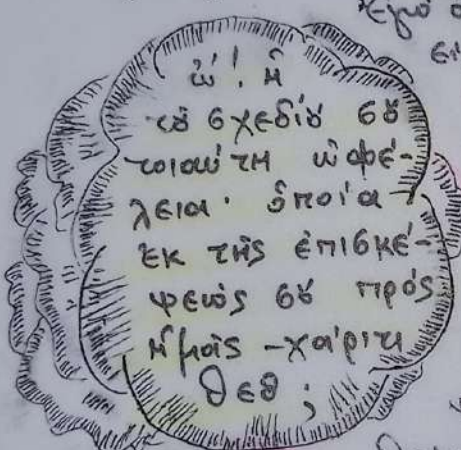 Ἐγώ
εἰ
ὤ! Ἡ
τȣ σχεδίȣ σȣ
τοιαύτη ὠφέ-
λεια· ὁποία
ἐκ τῆς ἐπισκέ-
ψεώς σȣ πρός
ἡμᾶς - χάριτι
Θεȣ;